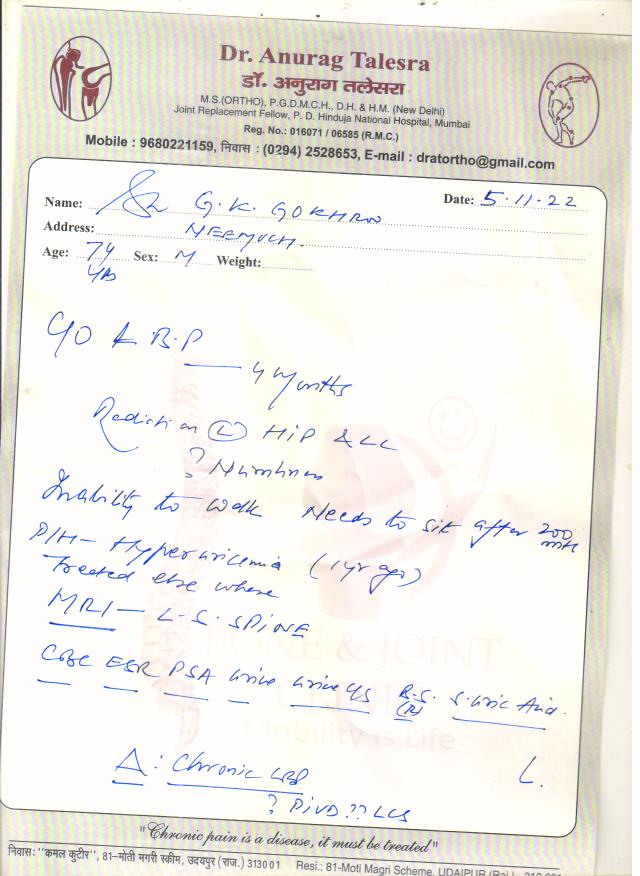 Dr. Anurag Talesra
डॉ. अनुराग तलेसरा
M.S.(ORTHO), P.G.D.M.C.H., D.H. & H.M. (New Delhi)
Joint Replacement Fellow, P. D. Hinduja National Hospital, Mumbai
Reg. No.: 016071 / 06585 (R.M.C.)
Mobile : 9680221159, निवास : (0294) 2528653, E-mail : dratortho@gmail.com
Name: G.K. GOKHRU Date: 5.11.22
Address: NEEMUCH.
Age: 74 yrs Sex: M Weight:
C/O L.B.P
4 Months
Radiation (L) HIP & LL
? Numbness
Inability to walk Needs to sit after 200 mts
P/H- Hyperuricemia (1 yr ago)
Treated else where
MRI - L.S. SPINE
BONE & JOINT
CBC ESR PSA Urine Urine C/S B.S. (R) S. Uric Acid.
Mobility is Life
Δ: Chronic LBP
? PIVD ?? LCS
"Chronic pain is a disease, it must be treated"
निवास: "कमल कुटीर", 81–मोती मगरी स्कीम, उदयपुर (राज.) 313001 Resi.: 81-Moti Magri Scheme, UDAIPUR (Raj.)